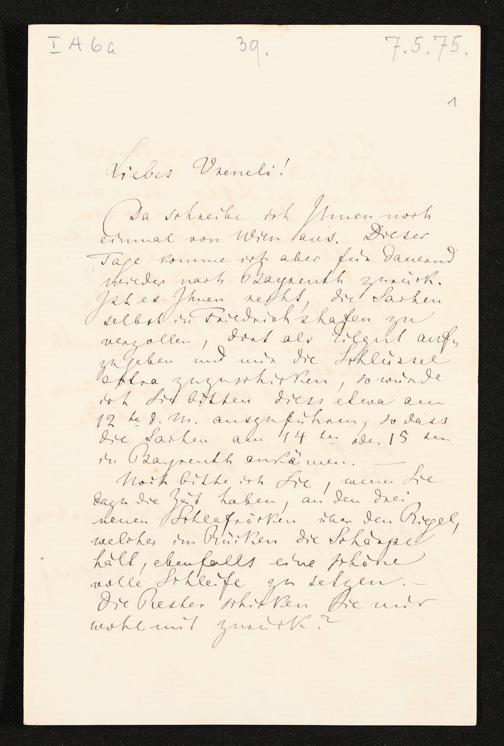 I A 6a 39. 7.5.75.
1
Liebes Vreneli!
Da schreibe ich Ihnen noch
einmal von Wien aus. Dieser
Tage komme ich aber für dauernd
wieder nach Bayreuth zurück.
Ist es Ihnen recht, die Sachen
selbst in Friedrichshafen zu
verzollen, dort als Eilgut aufzu
zugeben und mir die Schlüssel
extra zuzuschicken, so würde
ich Sie bitten diess etwa am
12ten d. M. auszuführen, so dass
die Sachen am 14ten oder 15ten
in Bayreuth ankämen. —
Noch bitte ich Sie, wenn Sie
dazu die Zeit haben, an den drei
neuen Schlafröcken über den Riegel,
welcher im Rücken die Schärpe
hält, ebenfalls eine schöne
volle Schleife zu setzen. —
Die Rester schicken Sie mir
wohl mit zurück?